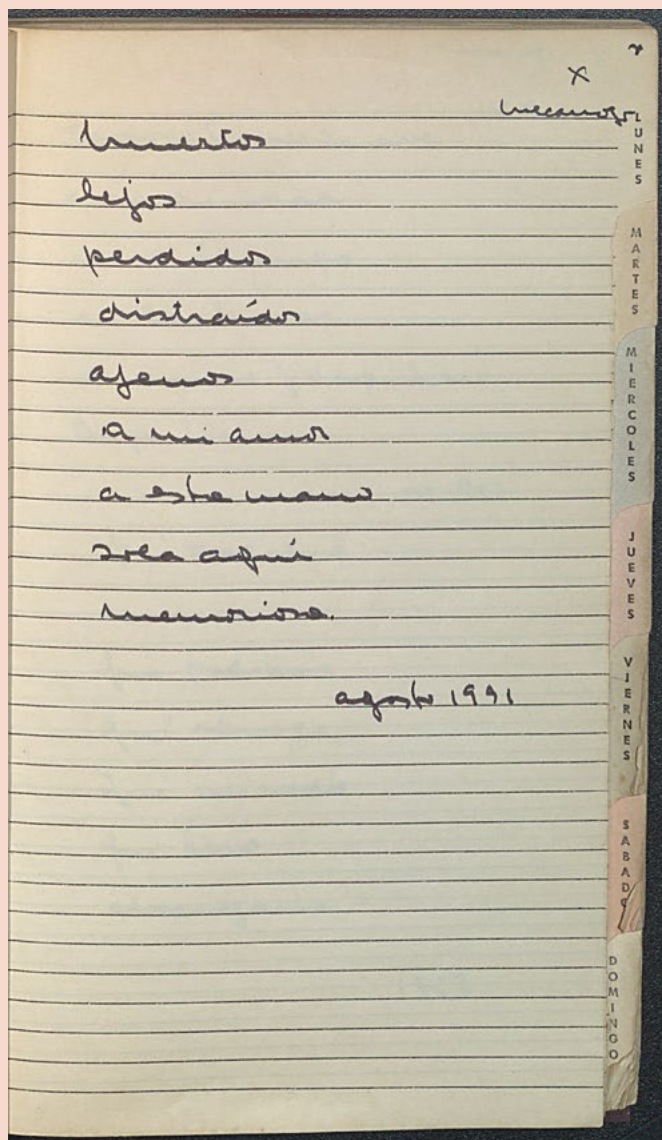 x
muertos
lejos
perdidos
distraídos
ajenos
a mi amor
a esta mano
sola aquí
memoriosa.
agosto 1991
LUNES
MARTES
MIERCOLES
JUEVES
VIERNES
SABADO
DOMINGO